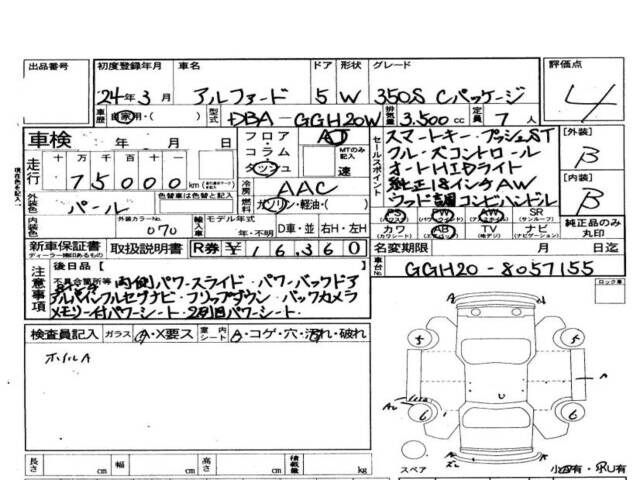 出品番号 初度登録年月 車名 ドア 形状 グレード 評価点
24年3月 アルファード 5 W 350S Cパッケージ 4
車歴 自家用・( ) 型式 DBA-GGH20W 排気量 3.500 cc 定員 7 人
車検 年 月 日
フロア・コラム・ダッシュ AT MTのみ記入 速
セールスポイント
スマートキー・プッシュST
クルーズコントロール
オートHIDライト
純正18インチAW
ウッド調コンビハンドル
[外装] B
[内装] B
走行 十万 万 千 百 十 一
75000 km
冷房 AAC
燃料 ガソリン・軽油・( )
外装色 パール 色替車は色替前色
内装色 外装カラーNo. 070
輸入車 モデル年式 年・不明 D車・並 右H・左H
PS PW AW SR (サンルーフ)
カワ (カワシート) AB TV (地デジ) ナビ (ナビゲーション)
純正品のみ丸印
新車保証書 取扱説明書 R券 ¥16,360
ディーラー捺印あるもの
名変期限 月 日迄
車台No. GGH20-8057155
現在色を記入
注意事項
後日品 [ ]
不具合箇所等 両側パワースライド・パワーバックドア
アルパインフルセグナビ・フリップダウン・バックカメラ
メモリー付パワーシート・2列目パワーシート
ロック車
検査員記入 ガラス A・X要ス 室内シート A・コゲ・穴・汚れ・破れ
ホイルA
5 5
A
U
A2 6 6
スペア
小凹有・尺U有
長さ cm 幅 cm 高さ cm 積載量 kg